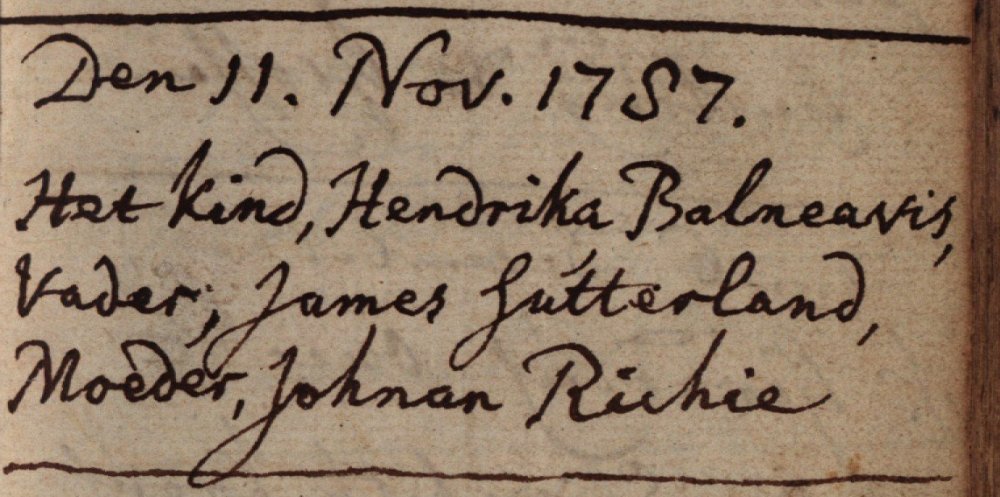 Den 11. Nov. 1787.
Het kind, Hendrika Balneavis,
Vader, James Sutterland,
Moeder, Johnan Richie